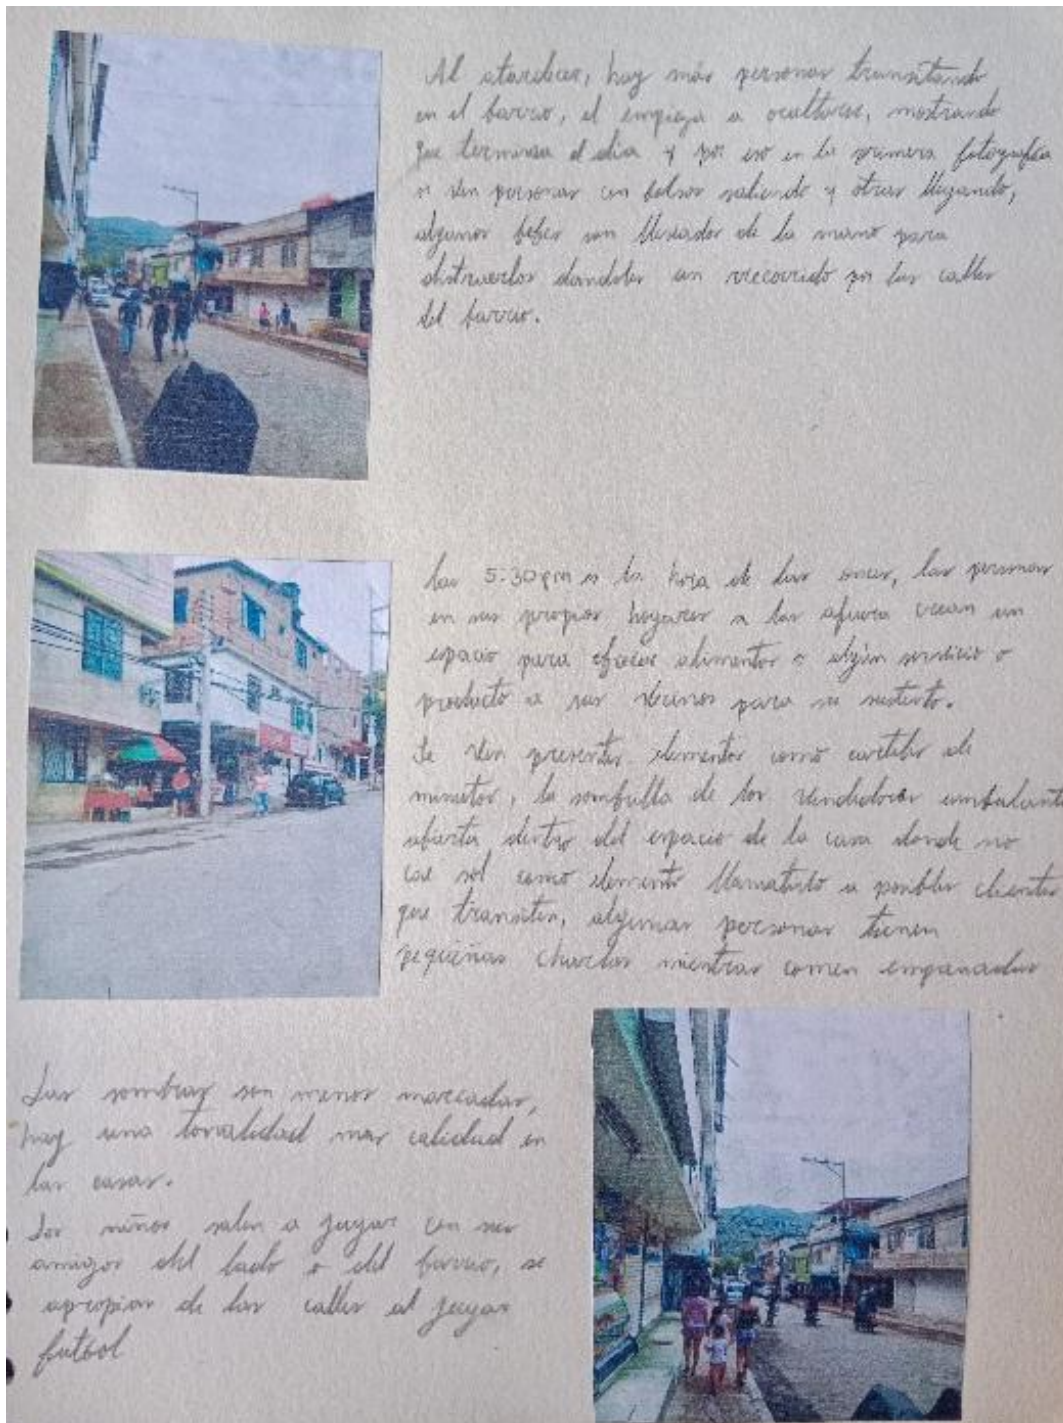 Al atardecer, hay más personas transitando
en el barrio, el empieza a ocultarse, mostrando
que termina el dia y por eso en la primera fotografía
se ven personas con bolsos saliendo y otras llegando,
algunos bebes son llevados de la mano para
distraerlos dandoles un recorrido por las calles
del barrio.
Las 5:30pm es la hora de las onces, las personas
en sus propios hogares a las afuera crean un
espacio para ofrecer alimentos o algún servicio o
producto a sus vecinos para su sustento.
Se ven presentes elementos como carteles de
minutos, la sombrilla de los vendedores ambulante
abierta dentro del espacio de la casa donde no
cae sol como elemento llamativo a posibles clientes
que transiten, algunas personas tienen
pequeñas charlas mientras comen empanadas
Las sombras son menos marcadas,
hay una tonalidad mas calidad en
las casas.
Los niños salen a jugar con sus
amigos del lado o del barrio, se
apropian de las calles al jugar
futbol